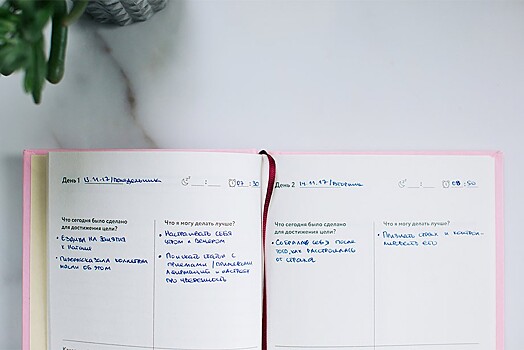 День 1 13.11.17/понедельник
__:__ 07:30
Что сегодня было сделано
для достижения цели?
• Ездила на занятия
к Наташе
• Рассказала коллегам
об этом
Что я могу делать лучше?
• Настраивать себя
утром и вечером
• Поискать статьи с
приемами /
аффирмаций и настроев
про уверенность
День 2 14.11.17/вторник
__:__ 08:50
Что сегодня было сделано
для достижения цели?
• Собрала себя после
того, как расстроилась
от страха
Что я могу делать лучше?
• Признать страх и контро-
лировать его